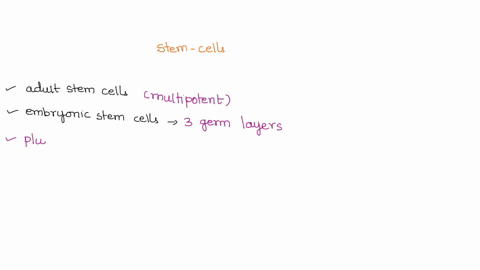 stem-cells
✓ adult stem cells (multipotent)
✓ embryonic stem cells → 3 germ layers
✓ plu